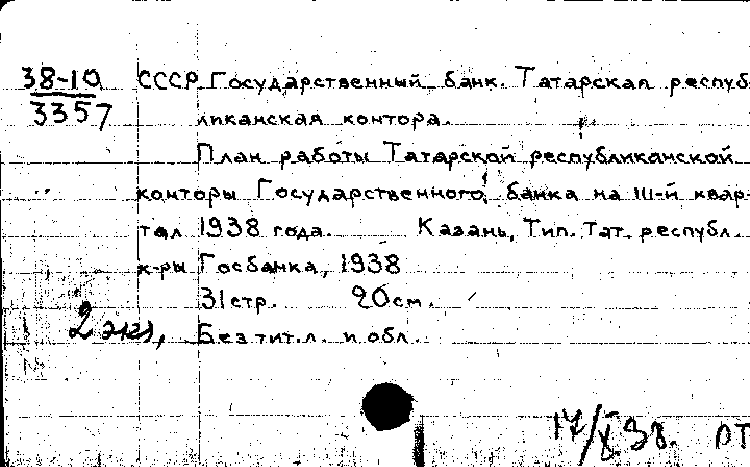 38-10
3357
СССР. Государственный банк. Татарская респуб-
ликанская контора.
План работы Татарской республиканской
конторы Государственного банка на III-й квар-
тал 1938 года. Казань, Тип. Тат. республ.
к-ры Госбанка, 1938
31 стр. 20 см.
2 экз, Без тит. л. и обл.
17/X 38. РТ